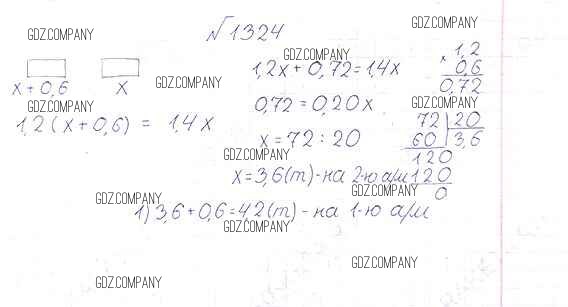 №1324
GDZ.COMPANY
GDZ.COMPANY
x + 0,6 x
GDZ.COMPANY
GDZ.COMPANY
1,2(x + 0,6) = 1,4x
GDZ.COMPANY
1,2x + 0,72 = 1,4x
0,72 = 0,20x
x = 72 : 20
GDZ.COMPANY
x = 3,6(т) - на 2-ю а/м
× 1,2
0,6
0,72
GDZ.COMPANY
72 20
60 3,6
120
120
0
GDZ.COMPANY
GDZ.COMPANY
1) 3,6 + 0,6 = 42(т) - на 1-ю а/м
GDZ.COMPANY
GDZ.COMPANY
GDZ.COMPANY